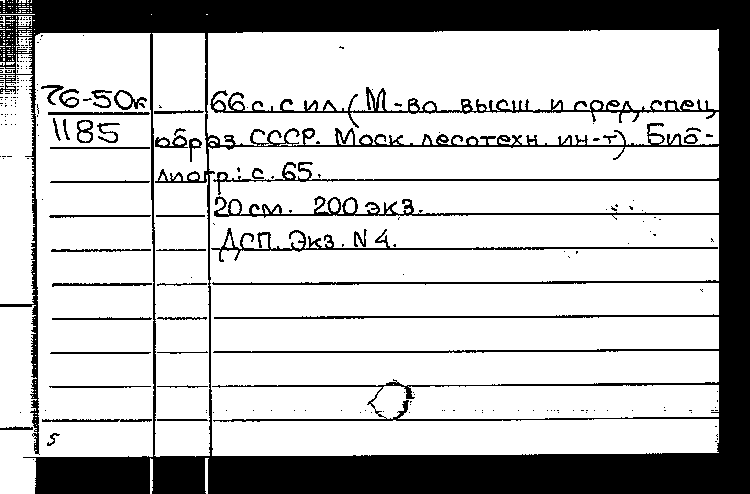 76-50к 66 с. с ил. (М-во высш. и сред. спец.
1185 образ. СССР. Моск. лесотехн. ин-т). Биб-
лиогр.: с. 65.
20 см. 200 экз.
ДСП. Экз. N 4.
5